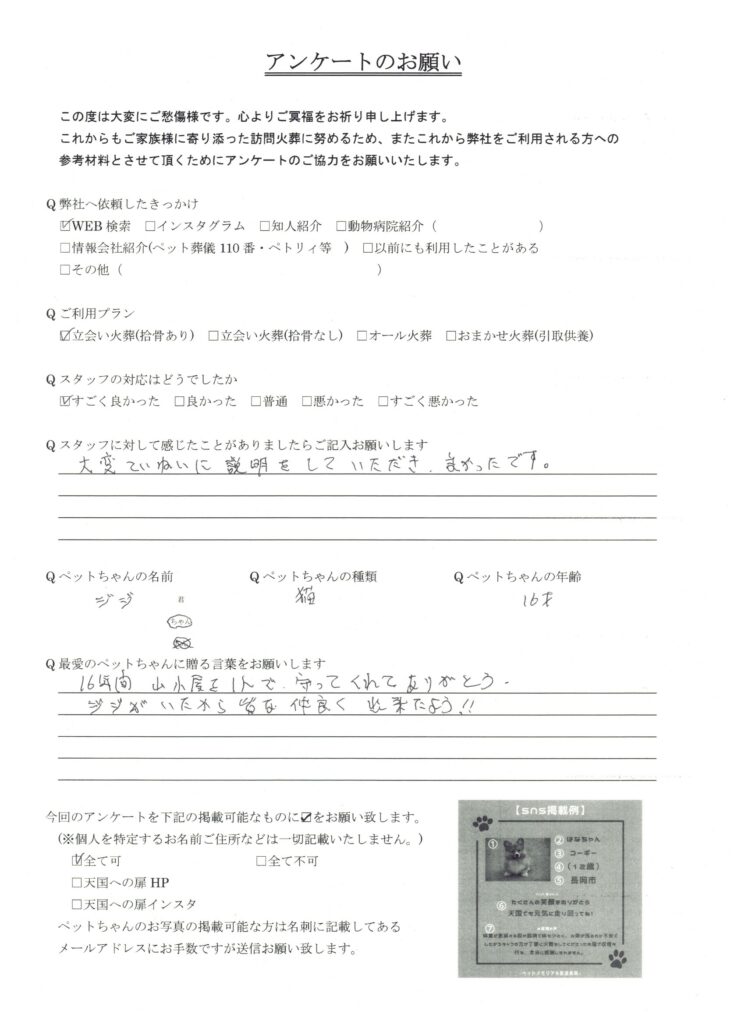 アンケートのお願い
この度は大変にご愁傷様です。心よりご冥福をお祈り申し上げます。
これからもご家族様に寄り添った訪問火葬に努めるため、またこれから弊社をご利用される方への
参考材料とさせて頂くためにアンケートのご協力をお願いいたします。
Q 弊社へ依頼したきっかけ
☑WEB 検索 □インスタグラム □知人紹介 □動物病院紹介（ ）
□情報会社紹介(ペット葬儀 110 番・ペトリィ等 ) □以前にも利用したことがある
□その他（ ）
Q ご利用プラン
☑立会い火葬(拾骨あり) □立会い火葬(拾骨なし) □オール火葬 □おまかせ火葬(引取供養)
Q スタッフの対応はどうでしたか
☑すごく良かった □良かった □普通 □悪かった □すごく悪かった
Q スタッフに対して感じたことがありましたらご記入お願いします
大変ていねいに説明をしていただき、良かったです。
Q ペットちゃんの名前 Q ペットちゃんの種類 Q ペットちゃんの年齢
ジジ 君 猫 16才
ちゃん
Q 最愛のペットちゃんに贈る言葉をお願いします
16年間 山小屋を1人で、守ってくれてありがとう。
ジジがいたから皆な仲良く出来たよう!!
今回のアンケートを下記の掲載可能なものに☑をお願い致します。
(※個人を特定するお名前ご住所などは一切記載いたしません。)
☑全て可 □全て不可
□天国への扉 HP
□天国への扉インスタ
ペットちゃんのお写真の掲載可能な方は名刺に記載してある
メールアドレスにお手数ですが送信お願い致します。
【sns掲載例】
①
② はなちゃん
③ コーギー
④ (12歳)
⑤ 長岡市
⑥ たくさんの笑顔をありがとう
天国でも元気に走り回ってね！
⑦